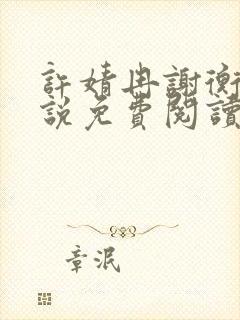 許婧冉謝衡
說免費閱讀
章泯